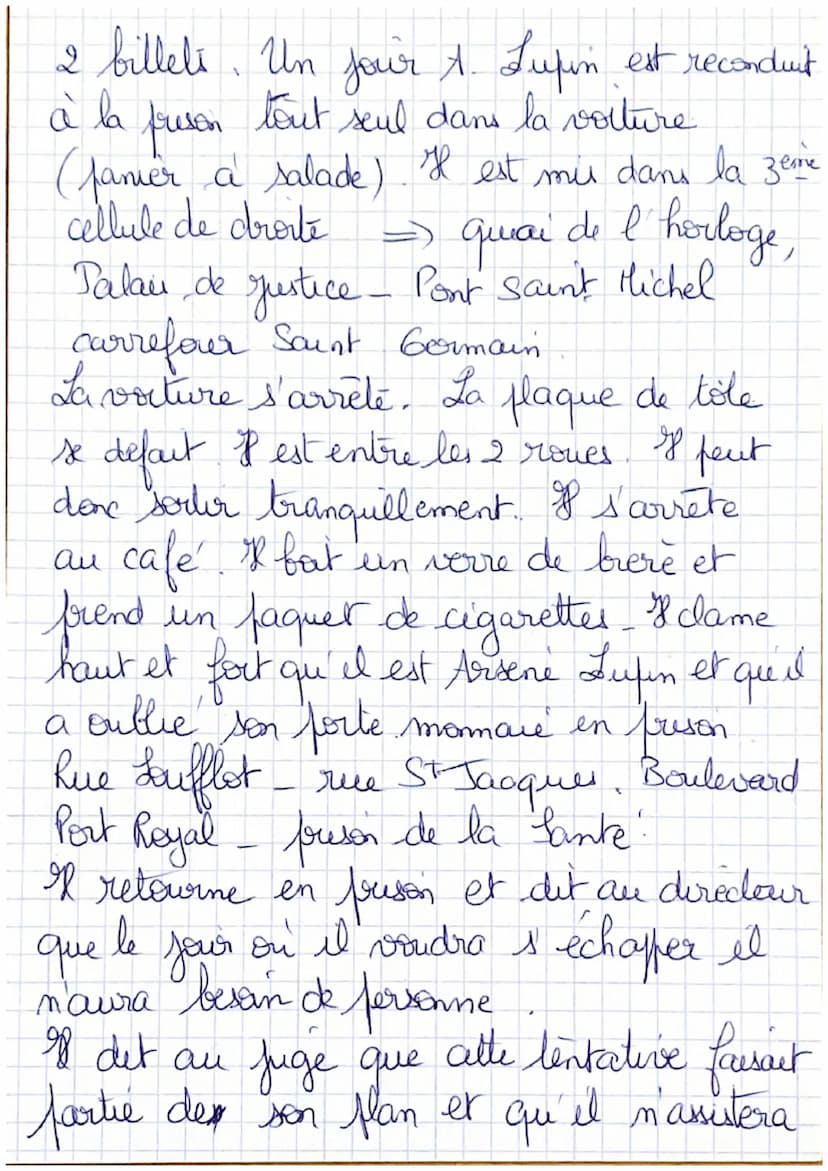 2 billets. Un jour A. Lupin est reconduit
à la prison tout seul dans la voiture
(panier à salade). Il est mis dans la 3eme
cellule de droite => quai de l'horloge,
Palais de justice - Pont Saint Michel
carrefour Saint Germain.
La voiture s'arrête. La plaque de tôle
se defait. Il est entre les 2 roues. Il peut
donc sortir tranquillement. Il s'arrête
au café. Il boit un verre de biere et
prend un paquet de cigarettes - Il clame
haut et fort qu'il est Arsene Lupin et qu'il
a oublié son porte monnaie en prison
Rue Soufflot - rue St Jacques. Boulevard
Port Royal - prison de la Santé.
Il retourne en prison et dit au directeur
que le jour où il voudra s'échapper il
n'aura besoin de personne.
Il dit au juge que cette tentative faisait
partie de son plan et qu'il n'assistera